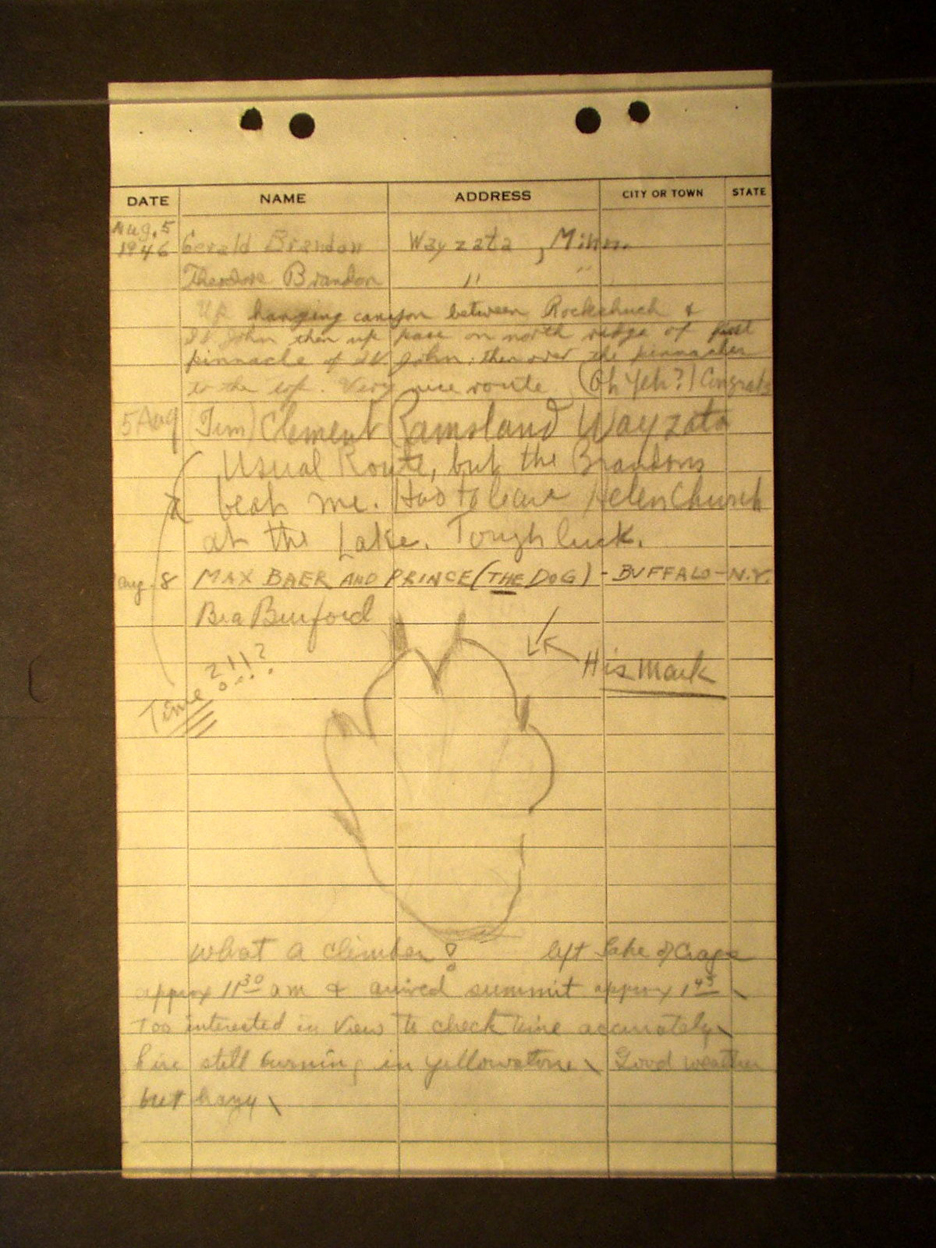 DATE NAME ADDRESS CITY OR TOWN STATE
Aug. 5
1946 Gerald Brandon Wayzata, Minn.
Theodore Brandon " "
Up hanging canyon between Rockchuck &
St John then up pass on north ridge of first
pinnacle of St John; then over the pinnacles
to the top. Very nice route (Oh Yeh?) Congrats
5 Aug (Jim) Clement Ramsland Wayzata
Usual Route, but the Brandons
beat me. Had to leave Helen Church
at the Lake. Tough luck.
Aug. 8 MAX BAER AND PRINCE (THE DOG) - BUFFALO - N.Y.
Bea Burford
His Mark
Time?!!?
What a climber! left Lake of Crags
approx 11 30 am & arrived summit approx 1 45
Too interested in view to check time accurately
Fire still burning in Yellowstone Good weather
but hazy